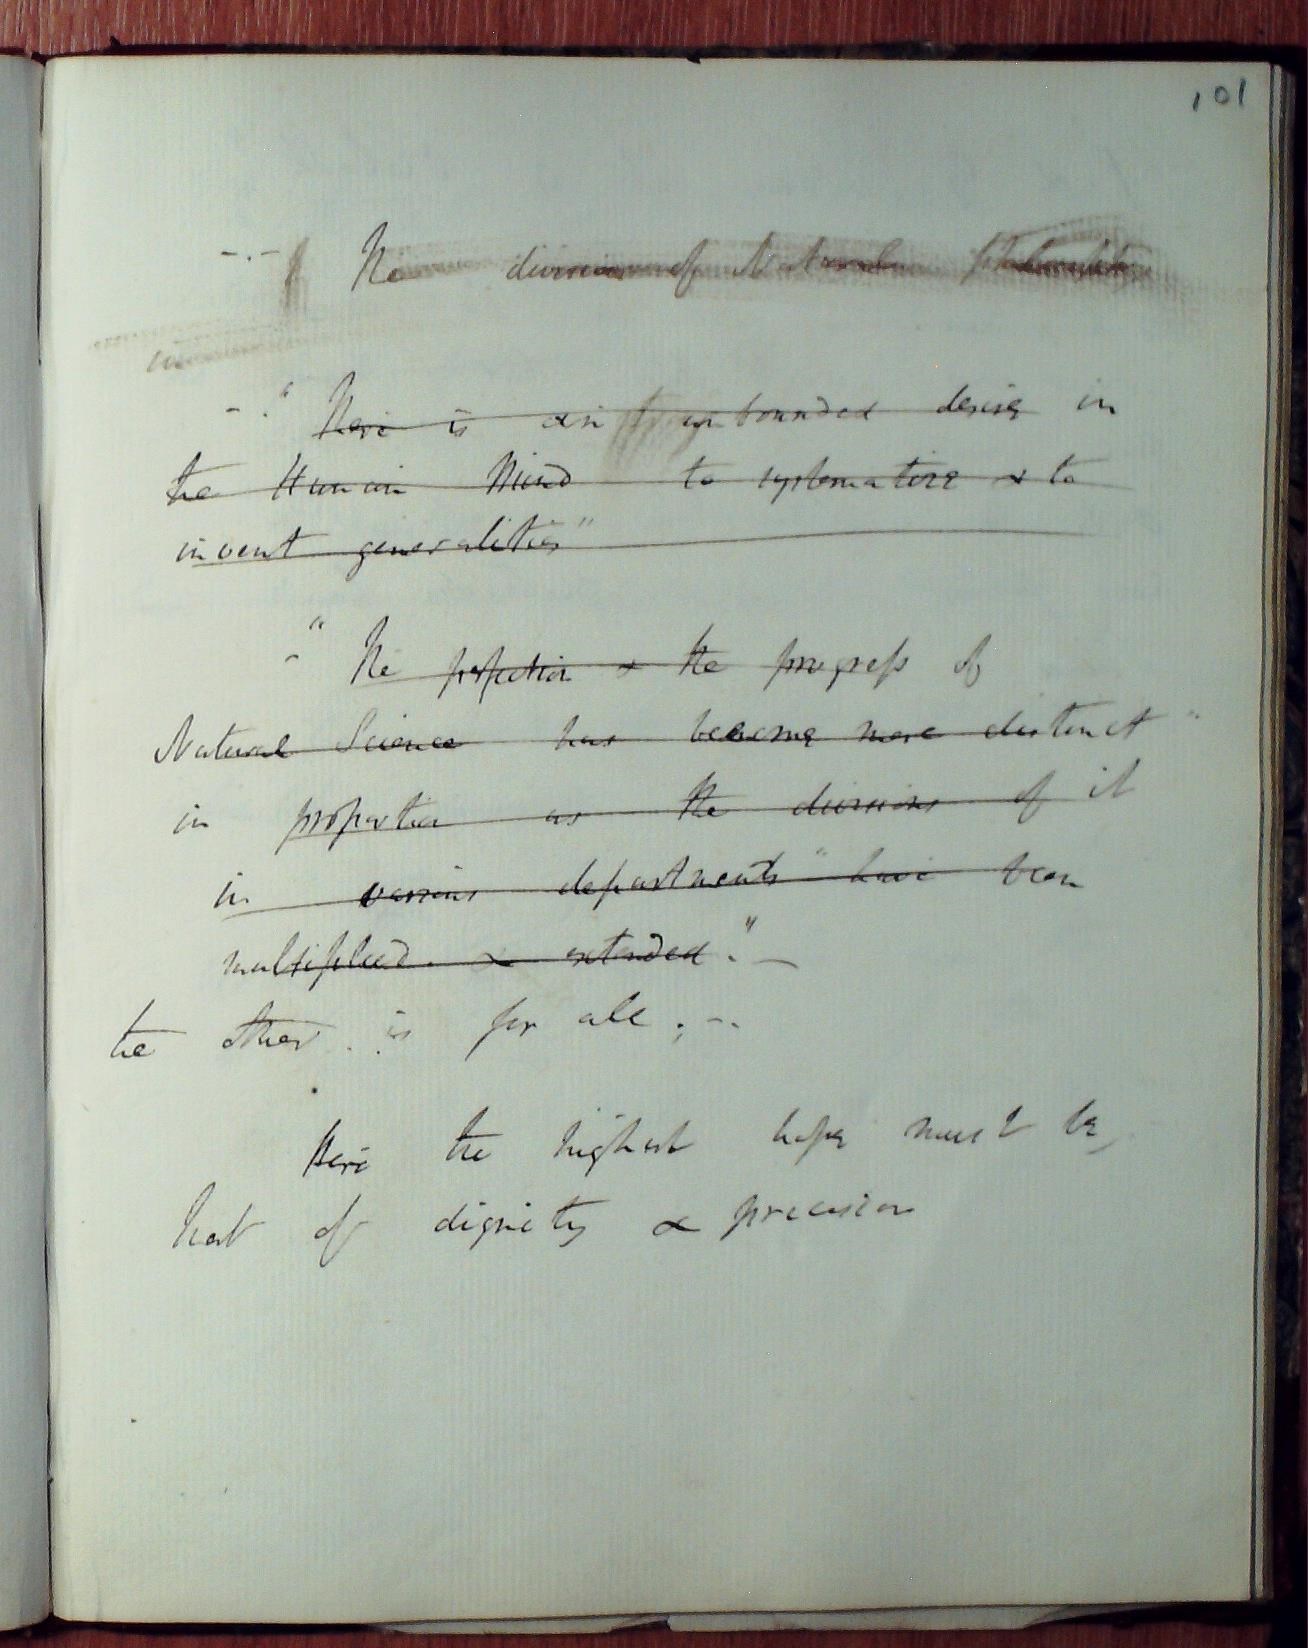 101
-.- The division of Natural
-. "There is an unbounded desire in
the Human Mind to systematize & to
invent generalities"
- "The perfection & the progress of
Natural Science has become more distinct "
in proportion as the divisions of it
in various departments " have been
multiplied. & extended ." —
the other . is for all ; -.
Here the highest hope must be,
that of dignity & precision